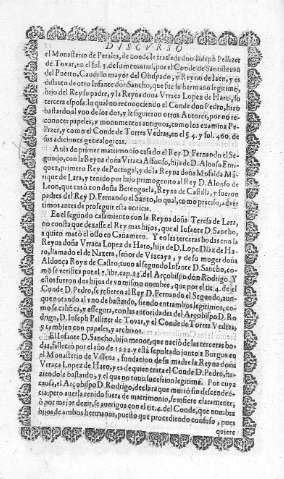 DISCVRSO
el Monasterio de Perales, de donde le traslado don Ioseph Pellizer
de Tovar, en el fol. 5. de su memorial, por el Conde de Santisteuan
del Puerto, Caudillo mayor del Obispado, y Reyno de Iaen, y es
distinto de otro Infante don Sancho, que fue su hermano legitimo,
hijo del Rey su padre, y la Reyna doña Vrraca Lopez de Haro, su
tercera esposa. lo qual no reconociendo el Conde don Pedro, hizo
bastardo al vno de los dos, y le siguieron otros Autores, por no re-
conocer papeles, y monumentos antiguos, como los examina Pe-
llizer, y como el Conde de Torres Vedras, en el § 4. y fol. 460. de
sus adiciones genealogicas.
A vis del primer matrimonio casado el Rey D. Fernando el Se-
gundo, con la Reyna doña Vrraca Alfonso, hija de D. Alonso En-
riquez, primero Rey de Portugal, y de la Reyna doña Mofalda Ma-
rique de Lara, y tenido por hijo primogenito al Rey D. Alonso de
Leon, que casó con doña Berenguela, Reyna de Castilla, y fueron
padres del Rey D. Fernando el Santo, lo qual, como preciso, adver-
timos antes de proseguir esta noticia.
En el segundo casamiento con la Reyna doña Teresa de Lara,
no consta que dexasse el Rey mas hijos, que al Infante D. Sancho,
a quien mató el osso en Cañamero. Y en las terceras bodas con la
Reyna doña Vrraca Lopez de Haro, hija de D. Lope Diaz de Ha-
ro, llamado el de Naxera, señor de Vizcaya, y de su muger doña
Aldonça Royz de Castro, tuuo al segundo Infante D. Sancho, co-
mo se verifica por el 7. libr. cap. 25. del Arçobispo don Rodrigo. Y
estos fueron dos hijos de vn mismo nombre, que por el tit. 4. de el
Conde D. Pedro, se refieren al Rey D. Fernando el Segundo, aun-
que notando al vno de bastardo, siendo entrambos legitimos, co-
mo se califica, y assegura, con las autoridades del Arçobispo D. Ro-
drigo, D. Ioseph Pellizer de Tovar, y el Conde de Torres Vedras,
y tambien con papeles, y archivos.
El Infante D. Sancho, hijo menor, que nació de las terceras bo-
das, falleció por el año de 1222. y está sepultado junto a Burgos en
el Monasterio de Villena, fundacion de su madre la Reyna doña
Vrraca Lopez de Haro, y es de quien trata el Conde D. Pedro, lla-
mandole bastardo, y el que notuvo sucession legitima. Por cuya
causa, el Arçobispo D. Rodrigo, declara que murió sin descenden-
cia; pero auerla tenido fuera de matrimonio, se infiere claramente;
ò por mejor dezir, se averigua con el tit. 4. del Conde, que nombra
hijos de ambos hermanos, puesto que procediendo confuso, pues
quiere